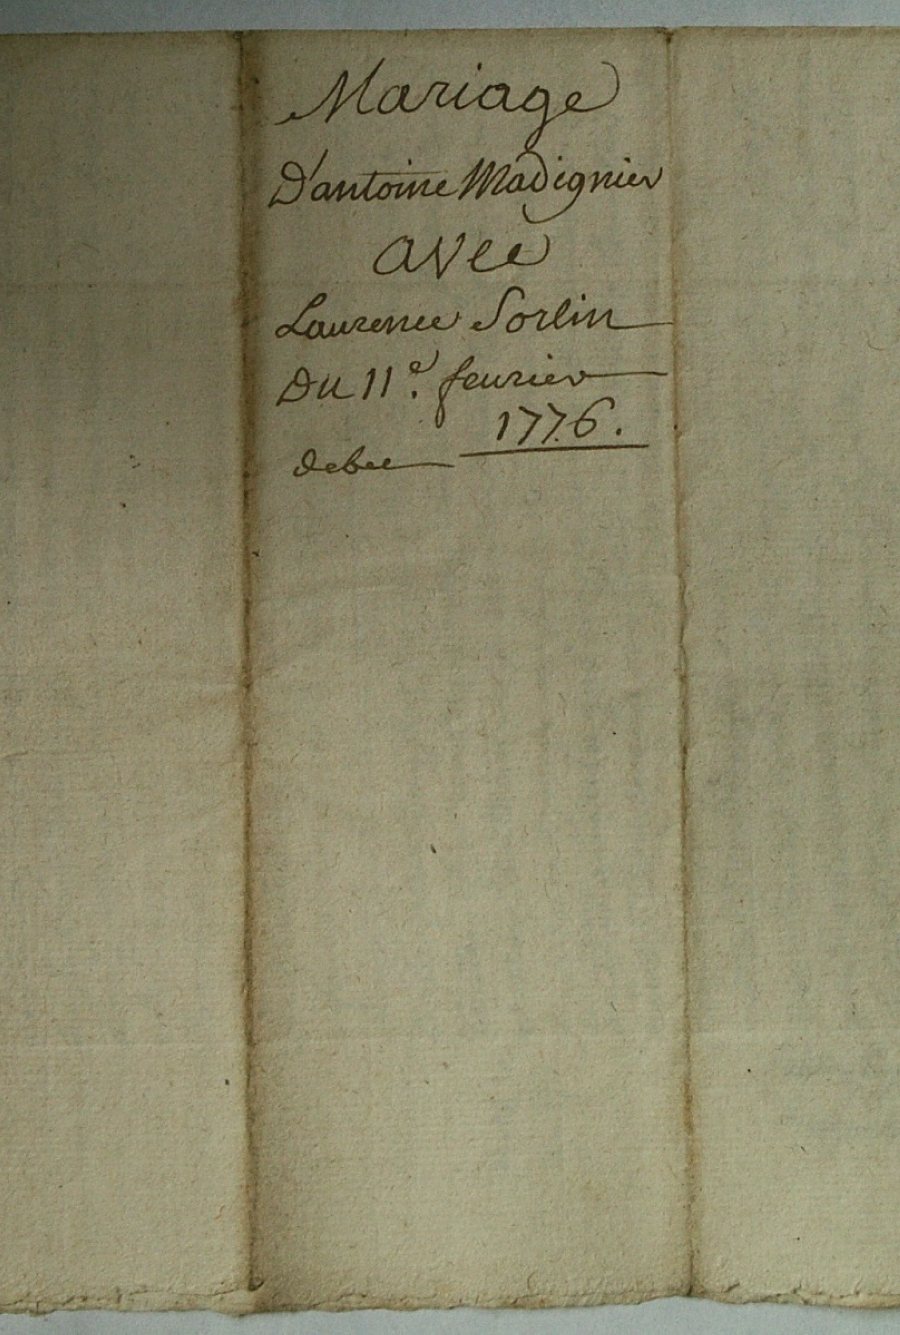 Mariage
D'antoine Madignier
avec
Laurence Sorlin
Du 11e. feurier
1776.